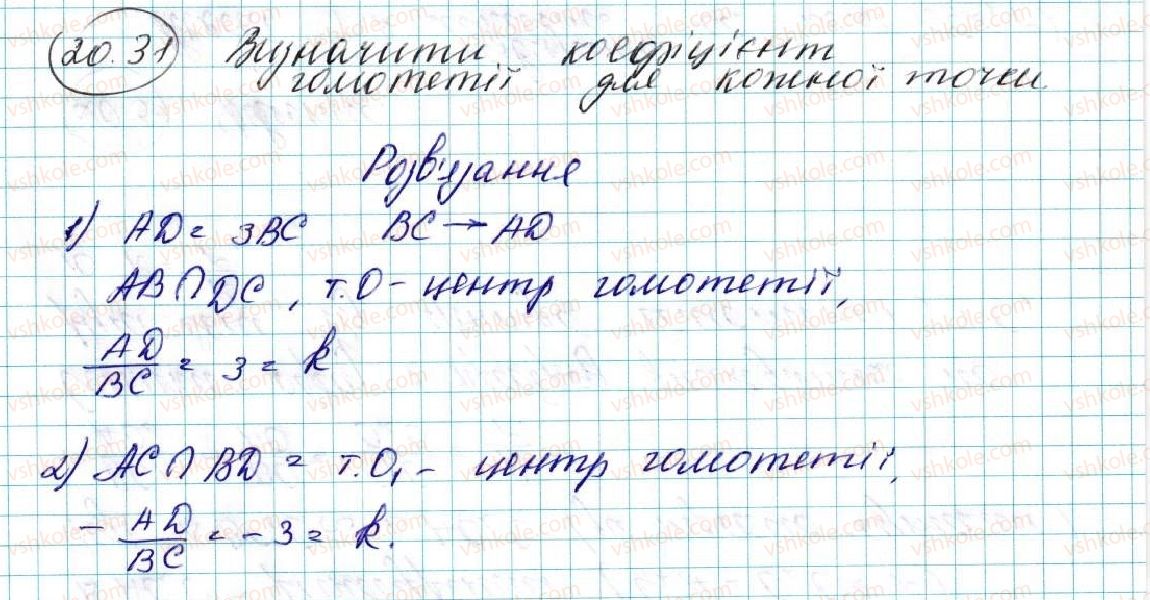 20.31 Визначити коефіцієнт
гомотетії для кожної точки.
Розв'язання
1) AD = 3BC BC → AD
AB ∩ DC, т.O - центр гомотетії,
AD/BC = 3 = k
2) AC ∩ BD = т.O₁ - центр гомотетії,
- AD/BC = -3 = k.